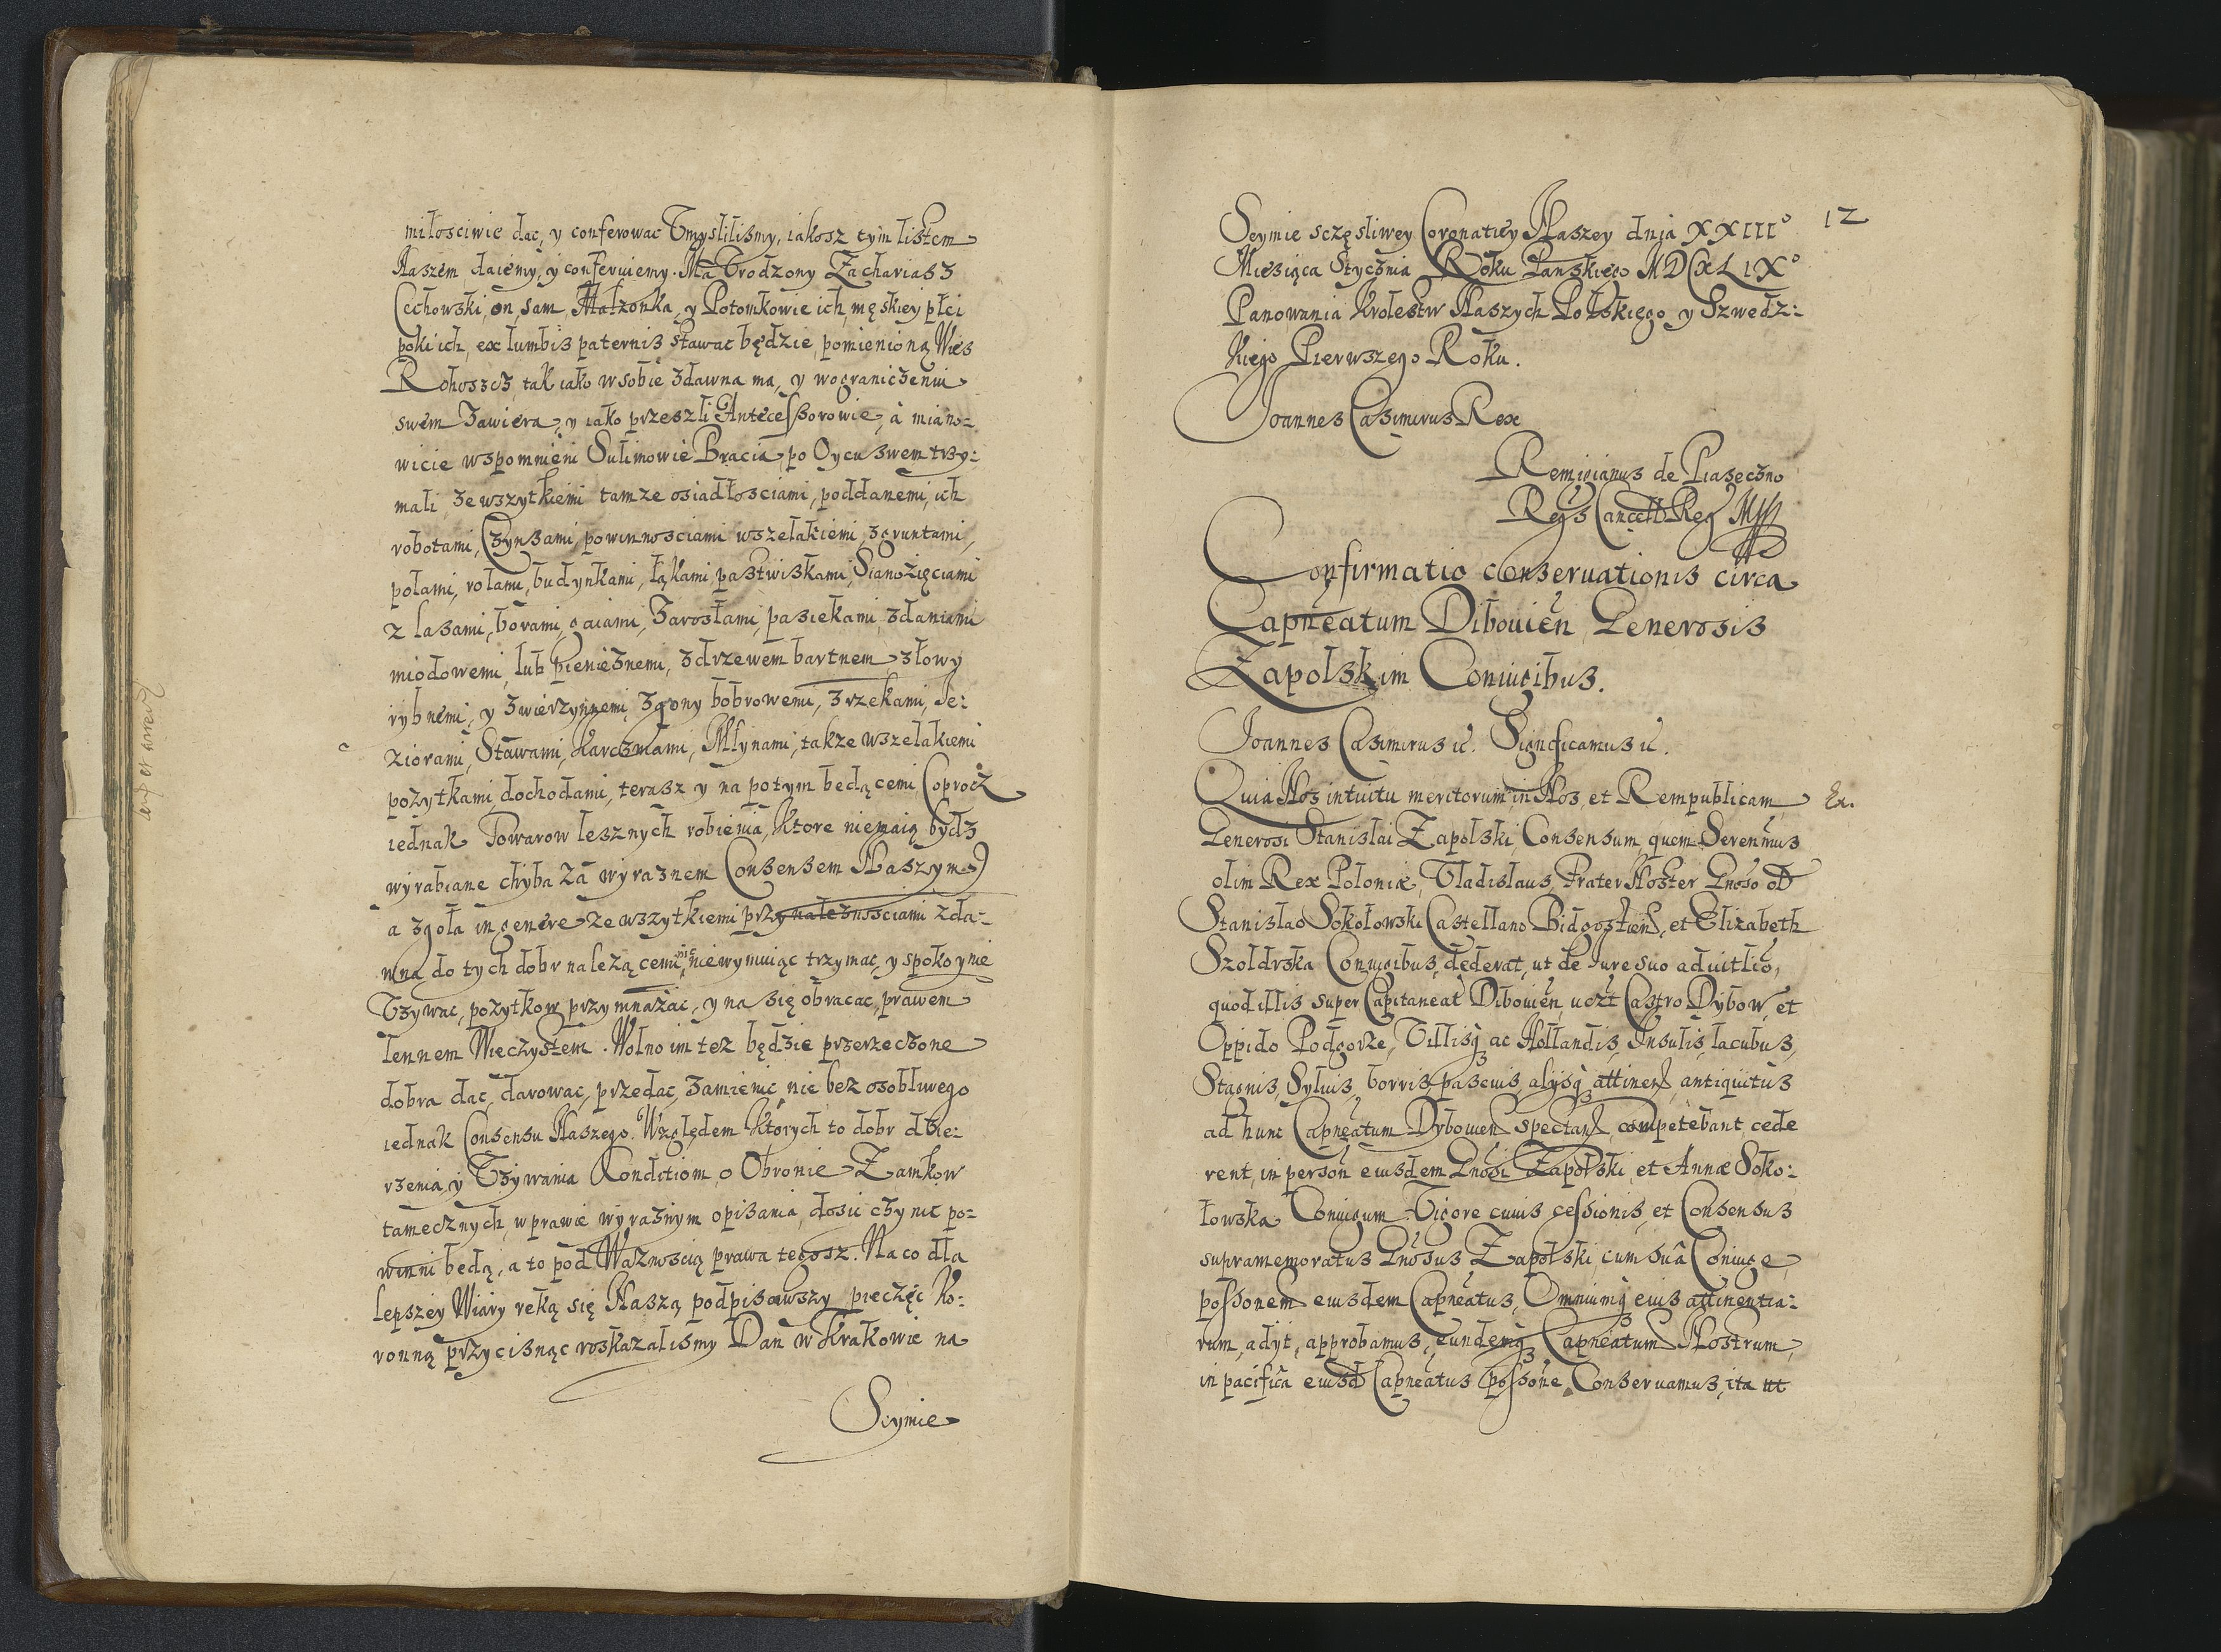 miłosciwie dac, y conferowac Vmyslilismy, iakosz tym listem
Naszem daiemy, y conferuiemy. Ma Vrodzony Zachariasz
Cechowski, on, sam, Małzonka, y Potomkowie ich, męskiey płci
poki ich, ex lumbis paternis stawac będzie, pomienioną Wies
Rohoszcz, tak iako w sobie zdawna ma, y w ograniczeniu
swem Zawiera, y iako przeszli Antecessorowie, à miano=
wicie wspomnieni Sulimowie Bracia, po Oycu swem trzy=
mali, ze wszytkiemi tamze osiadłosciami, poddanemi, ich
robotami, Czynszami, powinnosciami wszelakiemi, zgruntami,
polami, rolami, budynkami, łąkami, pastwiskami, Sianożęciami
z lasami, borami, gaiami, Zarosłami, pasiekami, zdaniami
miodowemi, lub pienieznemi, zdrzewem bartnem, złowy
rybnemi, y zwierzynnemi, zgony bobrowemi, z rzekami, Je=
ziorami, Stawami, Karczmami, Młynami, takze wszelakiemi
pozytkami, dochodami, terasz y na potym będącemi, (oprocz
iednak Towarow lesznych robienia, ktore niemaią bydz
wyrabiane chyba za wyraznem Consensem Naszym)
a zgoła in genere ze wszytkiemi przynaleznosciami zda=
wna do tych dobr nalezącemi, nic niewymuiąc trzymac, y spokoynie
Vzywac, pozytkow przymnażac, y na się obracac, prawem
lennem Wieczystem. Wolno im tez będzie przerzeczone
dobra dac, darowac, przedac, zamienic, nie bez osobliwego
iednak Consensu Naszego. Względem ktorych to dobr dzie=
rzenia, y Vzywania Konditiom, o Obronie Zamkow
tamecznych, w prawie wyraznym opisania, dosic czynic po=
winni będą, a to pod Waznoscią prawa tegosz. Na co dla
lepszey Wiary ręką się Naszą podpisawszy, pieczęc Ko=
ronną przycisnąc roskazalismy Dan w Krakowie na
Seymie
12
Seymie sczęsliwey Coronatiey Naszey dnia XXIII°
Miesiąca Stycznia Roku Panskiego MDCXLIX°
Panowania Krolestw Naszych Polskiego y Szwedz=
kiego Pierwszego Roku.
Joannes Casimirus Rex
Remigianus de Piaseczno
Regs Cancell Reg
Confirmatio conseruationis circa
Capneatum Dibouien Generosis
Zapolskim Coniugibus.
Joannes Casimirus &. Significamus &.
Quia Nos intuitu meritorum in Nos, et Rempublicam
Generosi Stanislai Zapolski, Consensum, quem Serenmus
olim Rex Poloniæ, Vladislaus, Frater Noster Gnoso old
Stanislao Sokołowski Castellano Bidgostien, et Elizabeth
Szoldrska Coniugibus, dederat, ut de Jure suo aduitlio,
quod illis super Capitaneat Dibouien, uczt Castro Dybow, et
Oppido Podgorze, Villisq ac Hollandis, Insulis, lacubus,
Stagnis, Syluis, borris, pascuis, alysq attinen, antiquitus
ad hunc Capneatum Dybouien spectan, competebant, cede
rent, in person eiusdem Gnosi Zapolski, et Annæ Soko=
łowska Coniugum. Vigore cuius cessionis, et Consensus
supramemoratus Gnosus Zapolski, cum suâ Coniuge,
possonem eiusdem Capneatus, Omniumq eius attinentia=
rum, adyt, approbamus, eundemq Capneatum Nostrum,
in pacificâ eiusd Capneatus possone, Conseruamus, ita ut